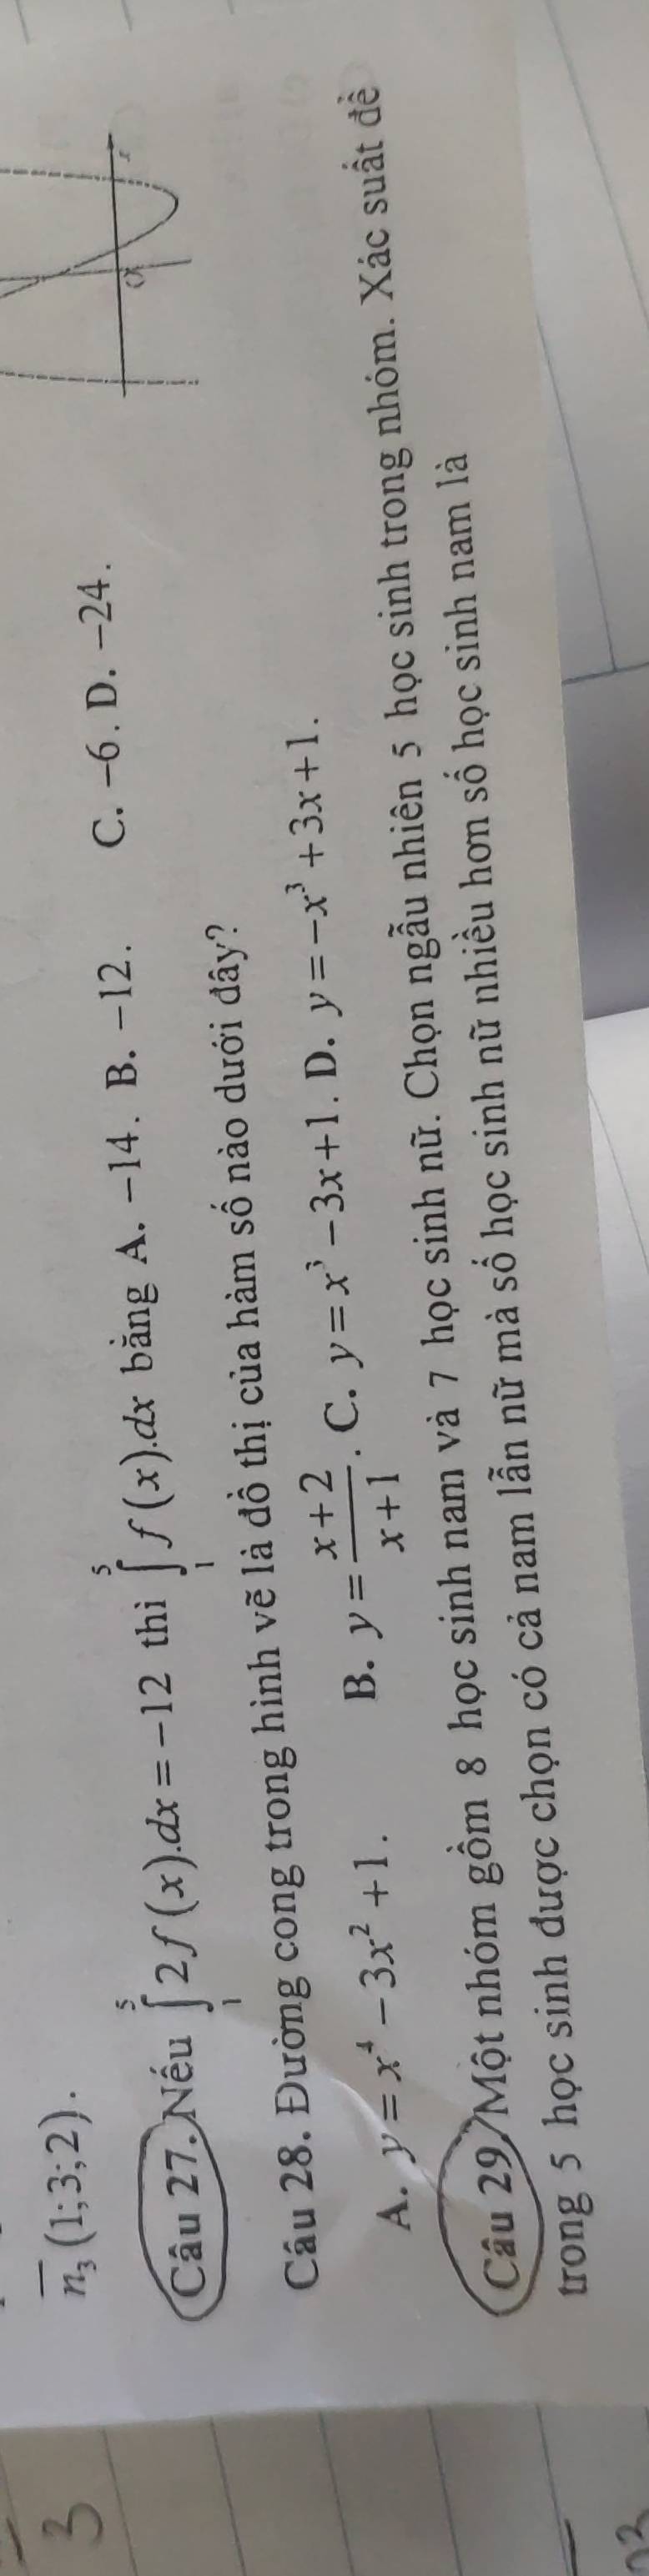 n₃(1;3;2).
Câu 27. Nếu ∫₁⁵ 2f(x).dx = −12 thì ∫₁⁵ f(x).dx bằng A. −14. B. −12. C. −6. D. −24.
Câu 28. Đường cong trong hình vẽ là đồ thị của hàm số nào dưới đây?
O x
A. y = x⁴ − 3x² + 1. B. y = (x+2)/(x+1). C. y = x³ − 3x + 1. D. y = −x³ + 3x + 1.
Câu 29. Một nhóm gồm 8 học sinh nam và 7 học sinh nữ. Chọn ngẫu nhiên 5 học sinh trong nhóm. Xác suất để
trong 5 học sinh được chọn có cả nam lẫn nữ mà số học sinh nữ nhiều hơn số học sinh nam là
3